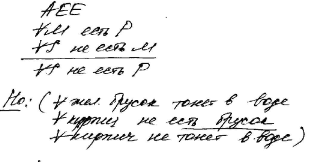 AEE
∀M есть P
∀S не есть M
∀S не есть P
Но: (∀ жел. брусок тонет в воде
∀ кирпич не есть брусок
∀ кирпич не тонет в воде)